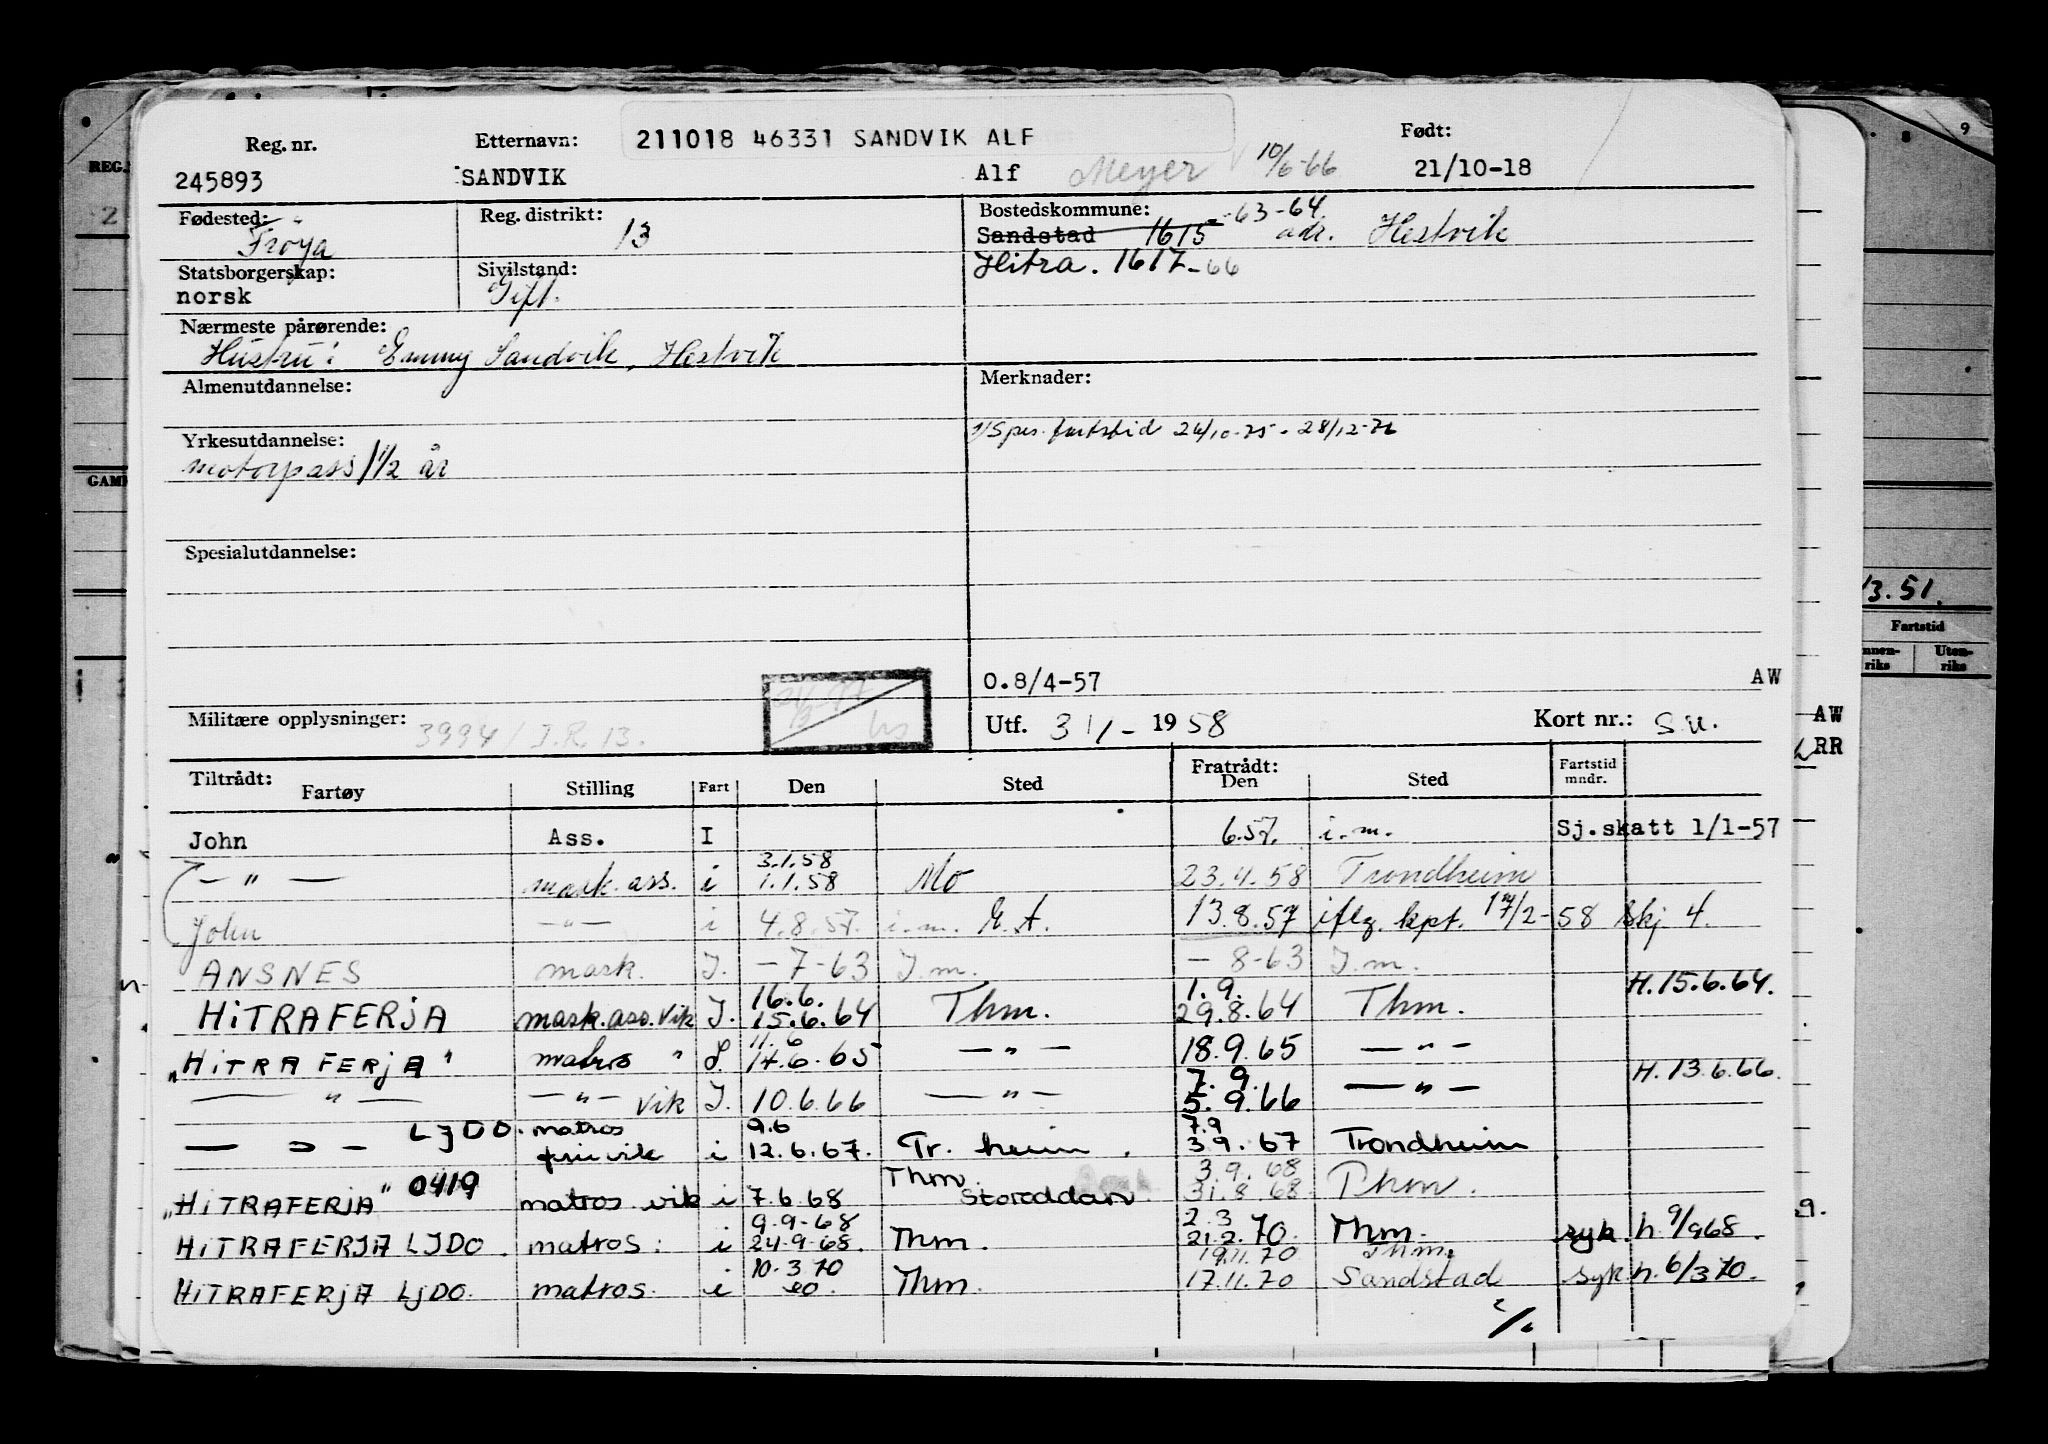 211018 46331 SANDVIK ALF
Reg. nr. Etternavn: Født:
245893 SANDVIK Alf Meyer 10/6-66 21/10-18
Fødested: Reg. distrikt: Bostedskommune: -63-64.
Frøya 13 Sandstad 1615 adr. Hestvik
Statsborgerskap: Sivilstand: Hitra. 1617-66
norsk Gift.
Nærmeste pårørende:
Hustru: Emmy Sandvik, Hestvik
Almenutdannelse: Merknader:
Yrkesutdannelse: Spes. fartstid 24/10-75 - 28/12-76
motorpass 1 1/2 år
Spesialutdannelse:
O.8/4-57 AW
Militære opplysninger: 3994 / I.R. 13. Utf. 3/1- 1958 Kort nr.: S.U.
Tiltrådt: Fratrådt: Fartstid
Fartøy Stilling Fart Den Sted Den Sted mndr.
John Ass. I 6.57. i.m. Sj.skatt 1/1-57
3.1.58
— " — mask. ass. i 1.1.58 Mo 23.4.58 Trondheim
John —"— i 4.8.57. i.m. E.A. 13.8.57 iflg. kpt. 17/2-58 Skj. 4.
ANSNES mask. I. -7-63 I.m. - 8-63 I.m.
16.6. 1.9. H.15.6.64.
HiTRAFERjA mask.ass. vik I. 15.6.64 Thm. 29.8.64 Thm.
11.6
"HiTRAFERjA" matros " I. 14.6.65 — " — 18.9.65 — " —
7.9. H.13.6.66.
— " — — " — vik I. 10.6.66 — " — 5.9.66 — " —
LJDO. matros 9.6 7.9
— " — vik i 12.6.67. Tr.heim. 3.9.67 Trondheim
0419 Thm. 3.9.68
"HiTRAFERjA" matros vik i 7.6.68 31.8.68 Thm.
9-9-68 2.3
HiTRAFERJA LJDO. matros. i 24-9-68. Thm. 21.2.70 Thm. syk. h. 9/968.
10.3.70 19.11.70 Thm.
HiTRAFERjA LjDO. matros. i Thm. 17.11.70 Sandstad syk. h. 6/370.
REG.
2
GAM
9
13.51.
Fartstid
Innen-riks Uten-riks
AW
RR
9.